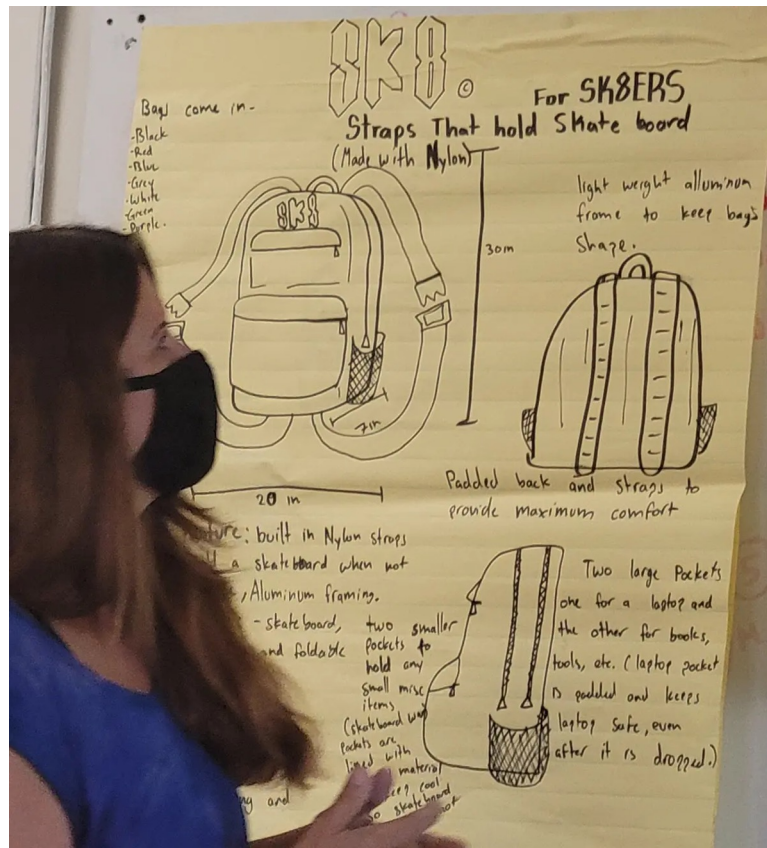 SK8 ©
For SK8ERS
Straps That hold Skate board
(Made with Nylon)
Bags come in-
-Black
-Red
-Blue
-Grey
-White
-Green
-Purple.
SK8
30in
7in
20 in
light weight alluminum
frame to keep bag's
shape.
Padded back and straps to
provide maximum comfort
built in Nylon straps
a skateboard when not
, Aluminum framing.
- skateboard,
and foldable
two smaller
pockets to
hold any
small misc
items
(skateboard
pockets are
lined with
material
keep cool
so skateboard
not
and
Two large Pockets
one for a laptop and
the other for books,
tools, etc. (laptop pocket
is padded and keeps
laptop safe, even
after it is dropped.)